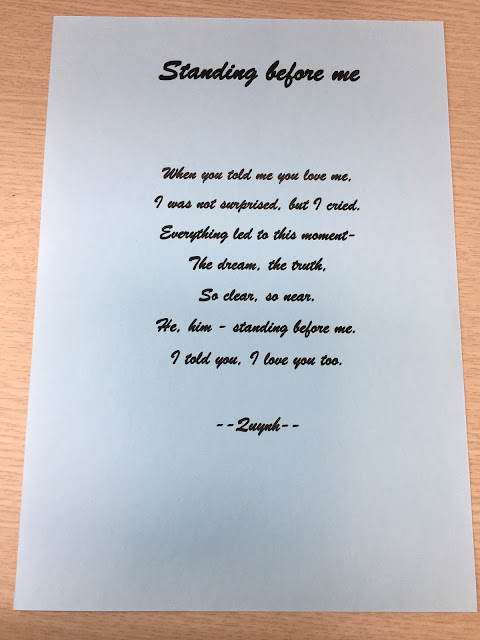 Standing before me
When you told me you love me,
I was not surprised, but I cried.
Everything led to this moment-
The dream, the truth,
So clear, so near.
He, him - standing before me.
I told you, I love you too.
--Quynh--